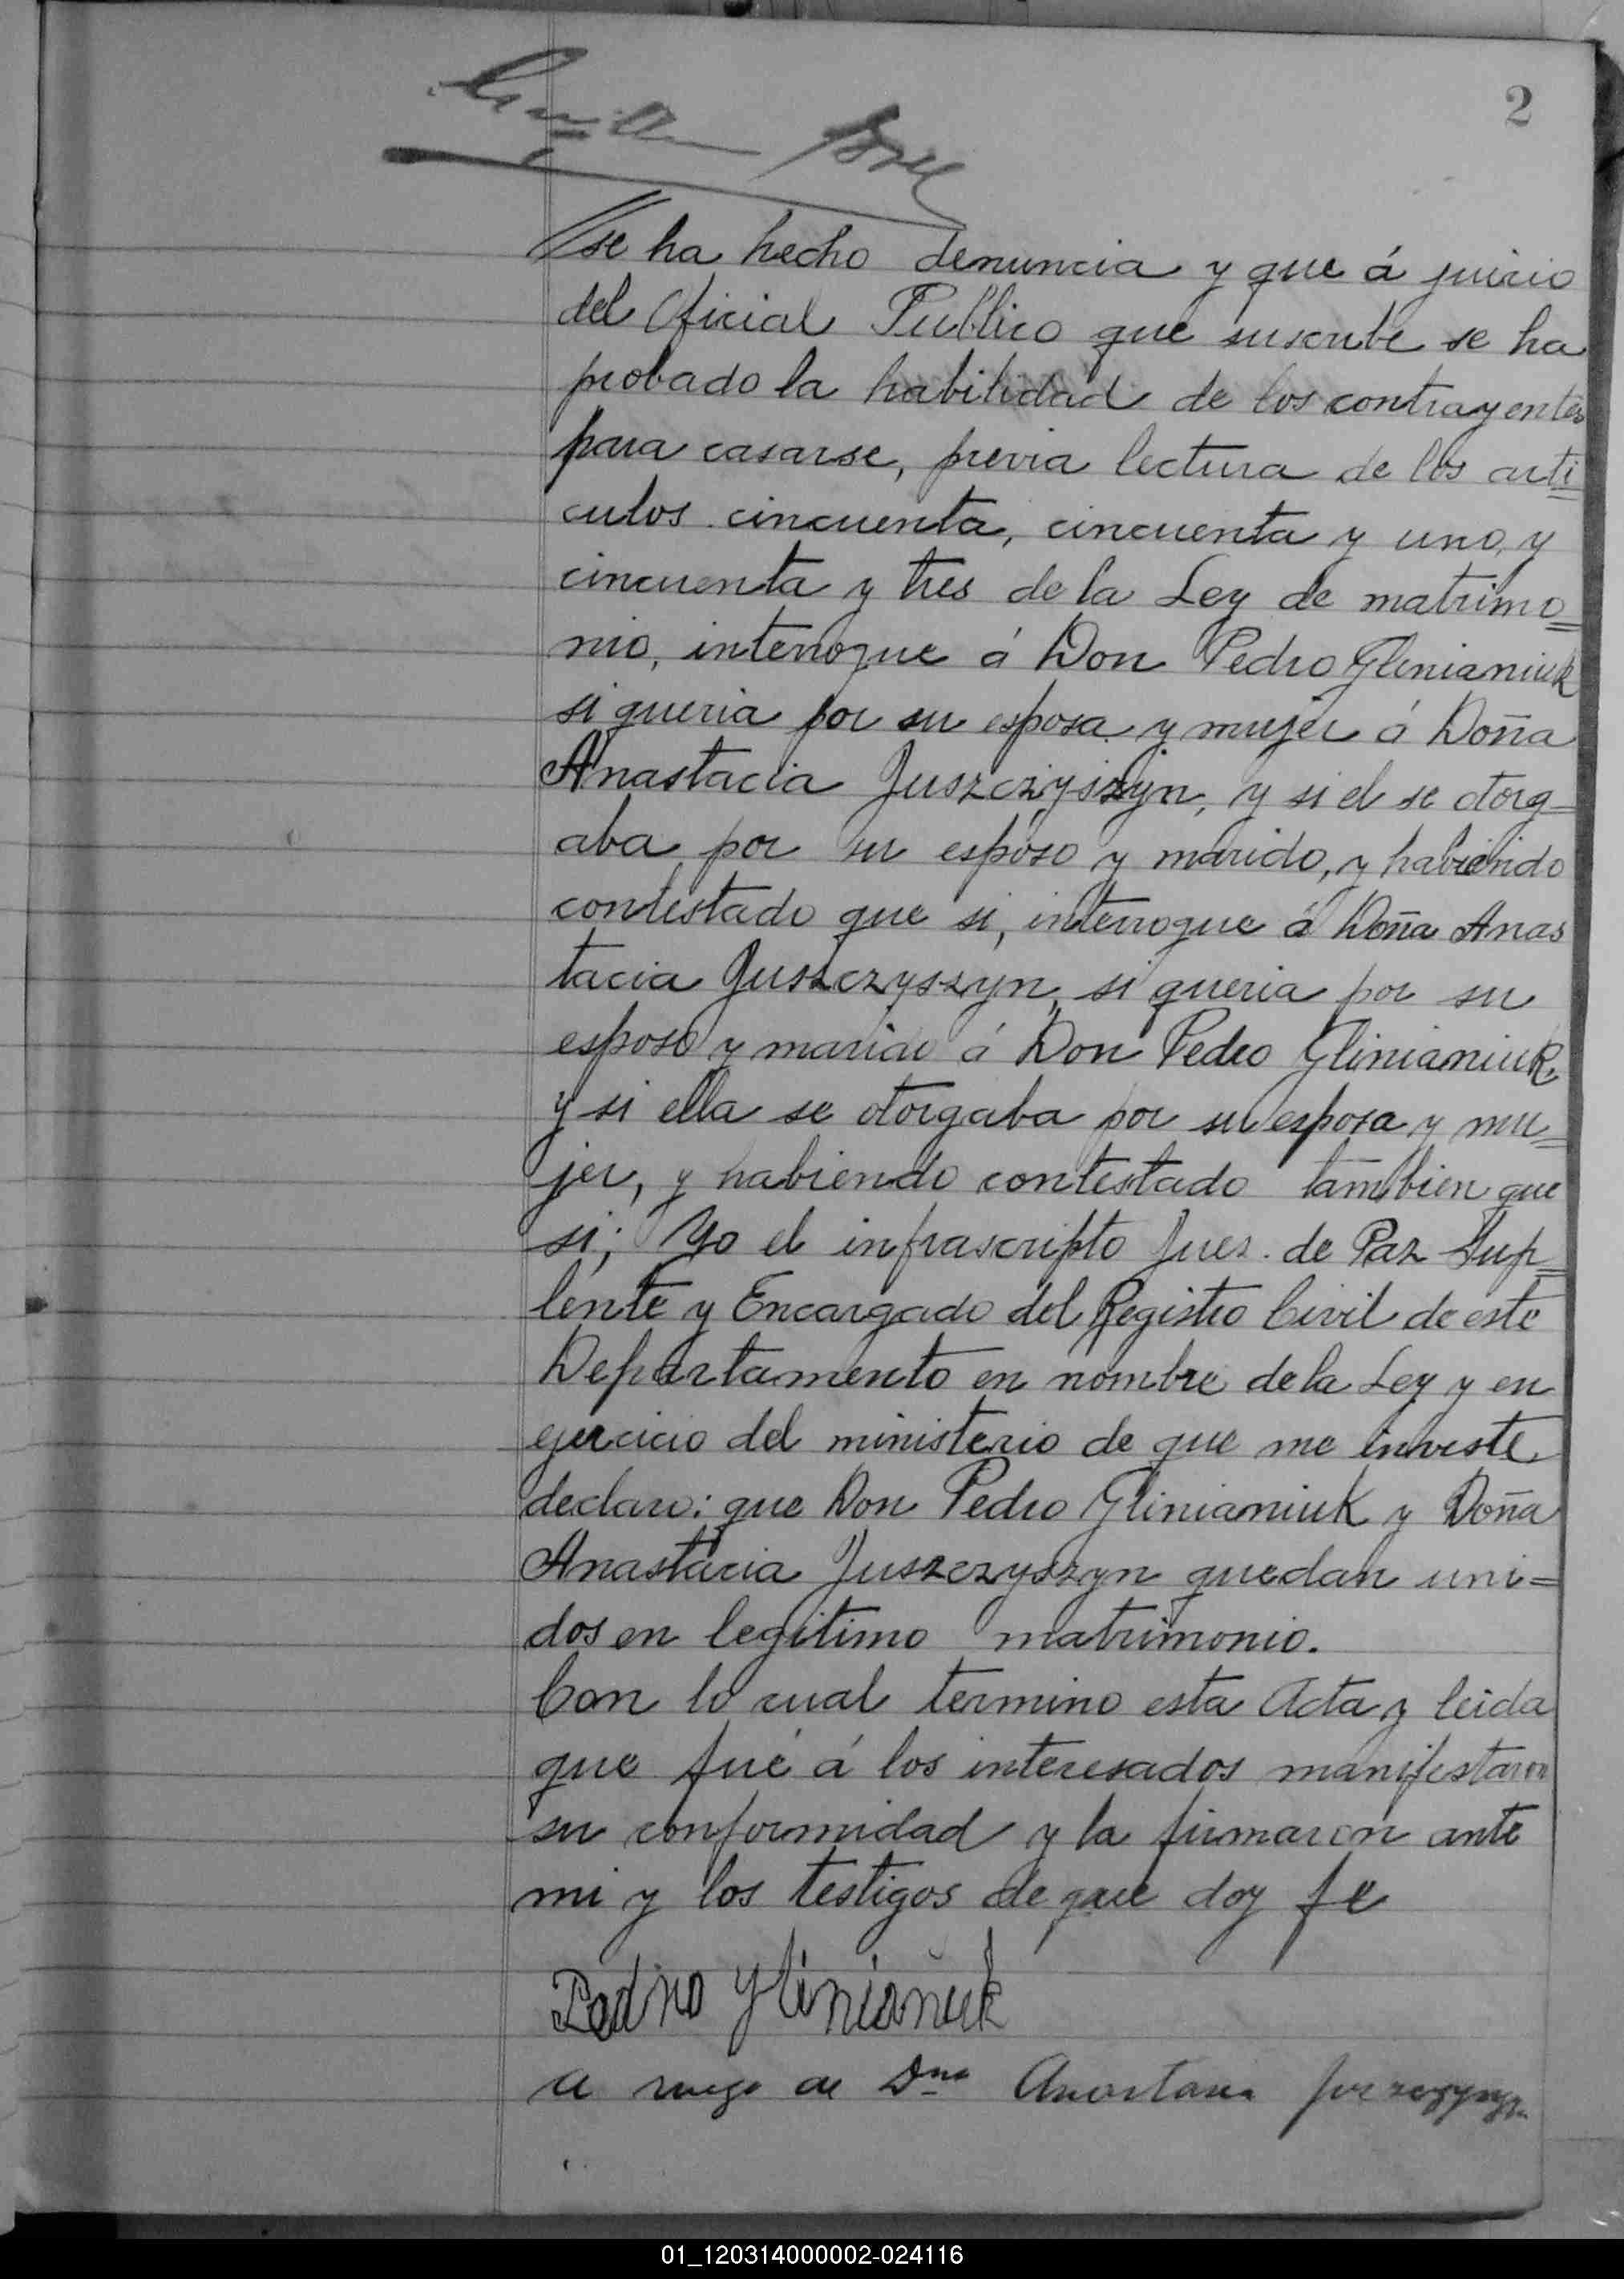 2
se ha hecho denuncia y que á juicio
del Oficial Publico que suscribe se ha
probado la habilidad de los contrayentes
para casarse, previa lectura de los arti=
culos cincuenta, cincuenta y uno, y
cincuenta y tres de la Ley de matrimo=
nio, interrogue á Don Pedro Glinianiuk
si queria por su esposa y mujer á Doña
Anastacia Juszczyszyn, y si el se otorg=
aba por su esposo y marido, y habiendo
contestado que si, interrogue á Doña Anas
tacia Juszczyszyn, si queria por su
esposo y marido á Don Pedro Glinianiuk,
y si ella se otorgaba por su esposa y mu=
jer, y habiendo contestado tambien que
si; Yo el infrascripto Juez de Paz Sup=
lente y Encargado del Registro Civil de este
Departamento en nombre de la Ley y en
ejercicio del ministerio de que me inviste
declaro: que Don Pedro Glinianiuk y Doña
Anastacia Juszczyszyn quedan uni=
dos en legitimo matrimonio.
Con lo cual termino esta Acta y leida
que fué á los interesados manifestaron
su conformidad y la firmaron ante
mi y los testigos de que doy fe
Pedro Glinianiuk
a ruego de Dna Anastasia
01_120314000002-024116